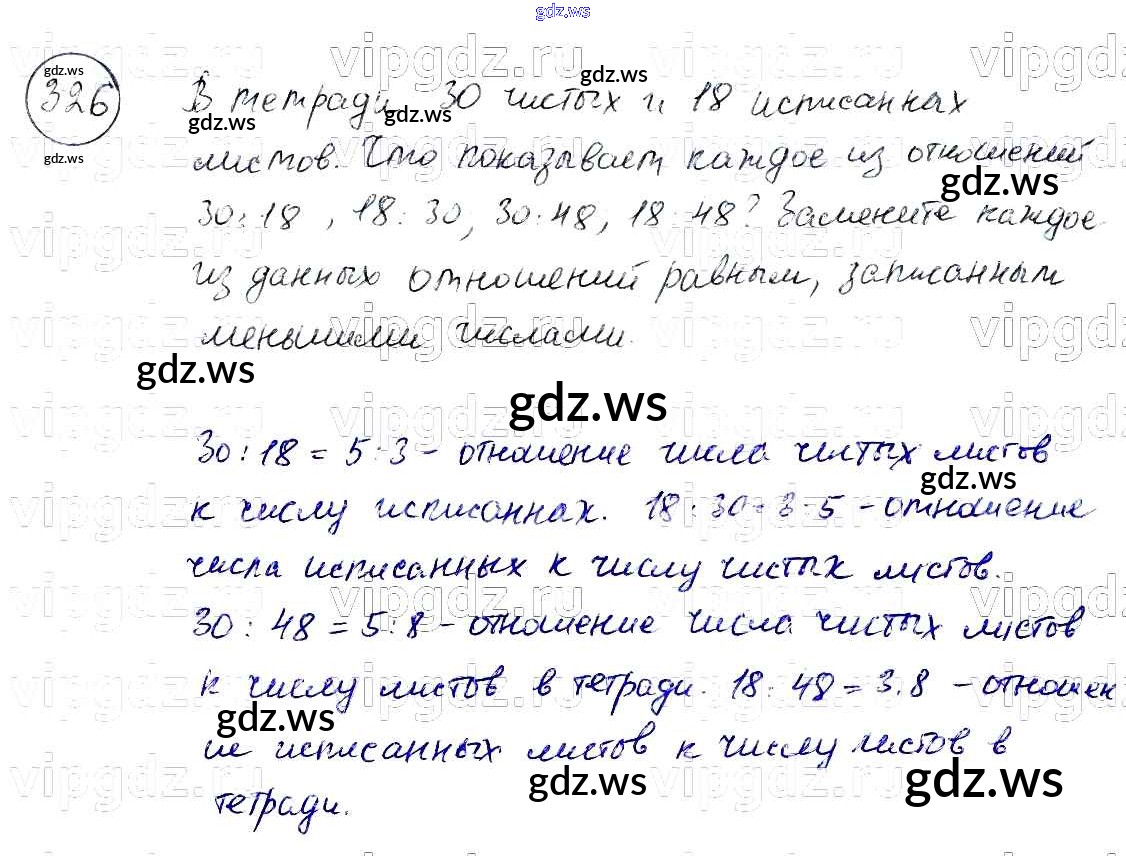 gdz.ws
326
В тетради 30 чистых и 18 исписанных
листов. Что показывает каждое из отношений
30:18, 18:30, 30:48, 18:48? Замените каждое
из данных отношений равным, записанным
меньшими числами.
30:18 = 5:3 - отношение числа чистых листов
к числу исписанных. 18:30=3:5 - отношение
числа исписанных к числу чистых листов.
30:48 = 5:8 - отношение числа чистых листов
к числу листов в тетради. 18:48 = 3:8 - отношен
ие исписанных листов к числу листов в
тетради.